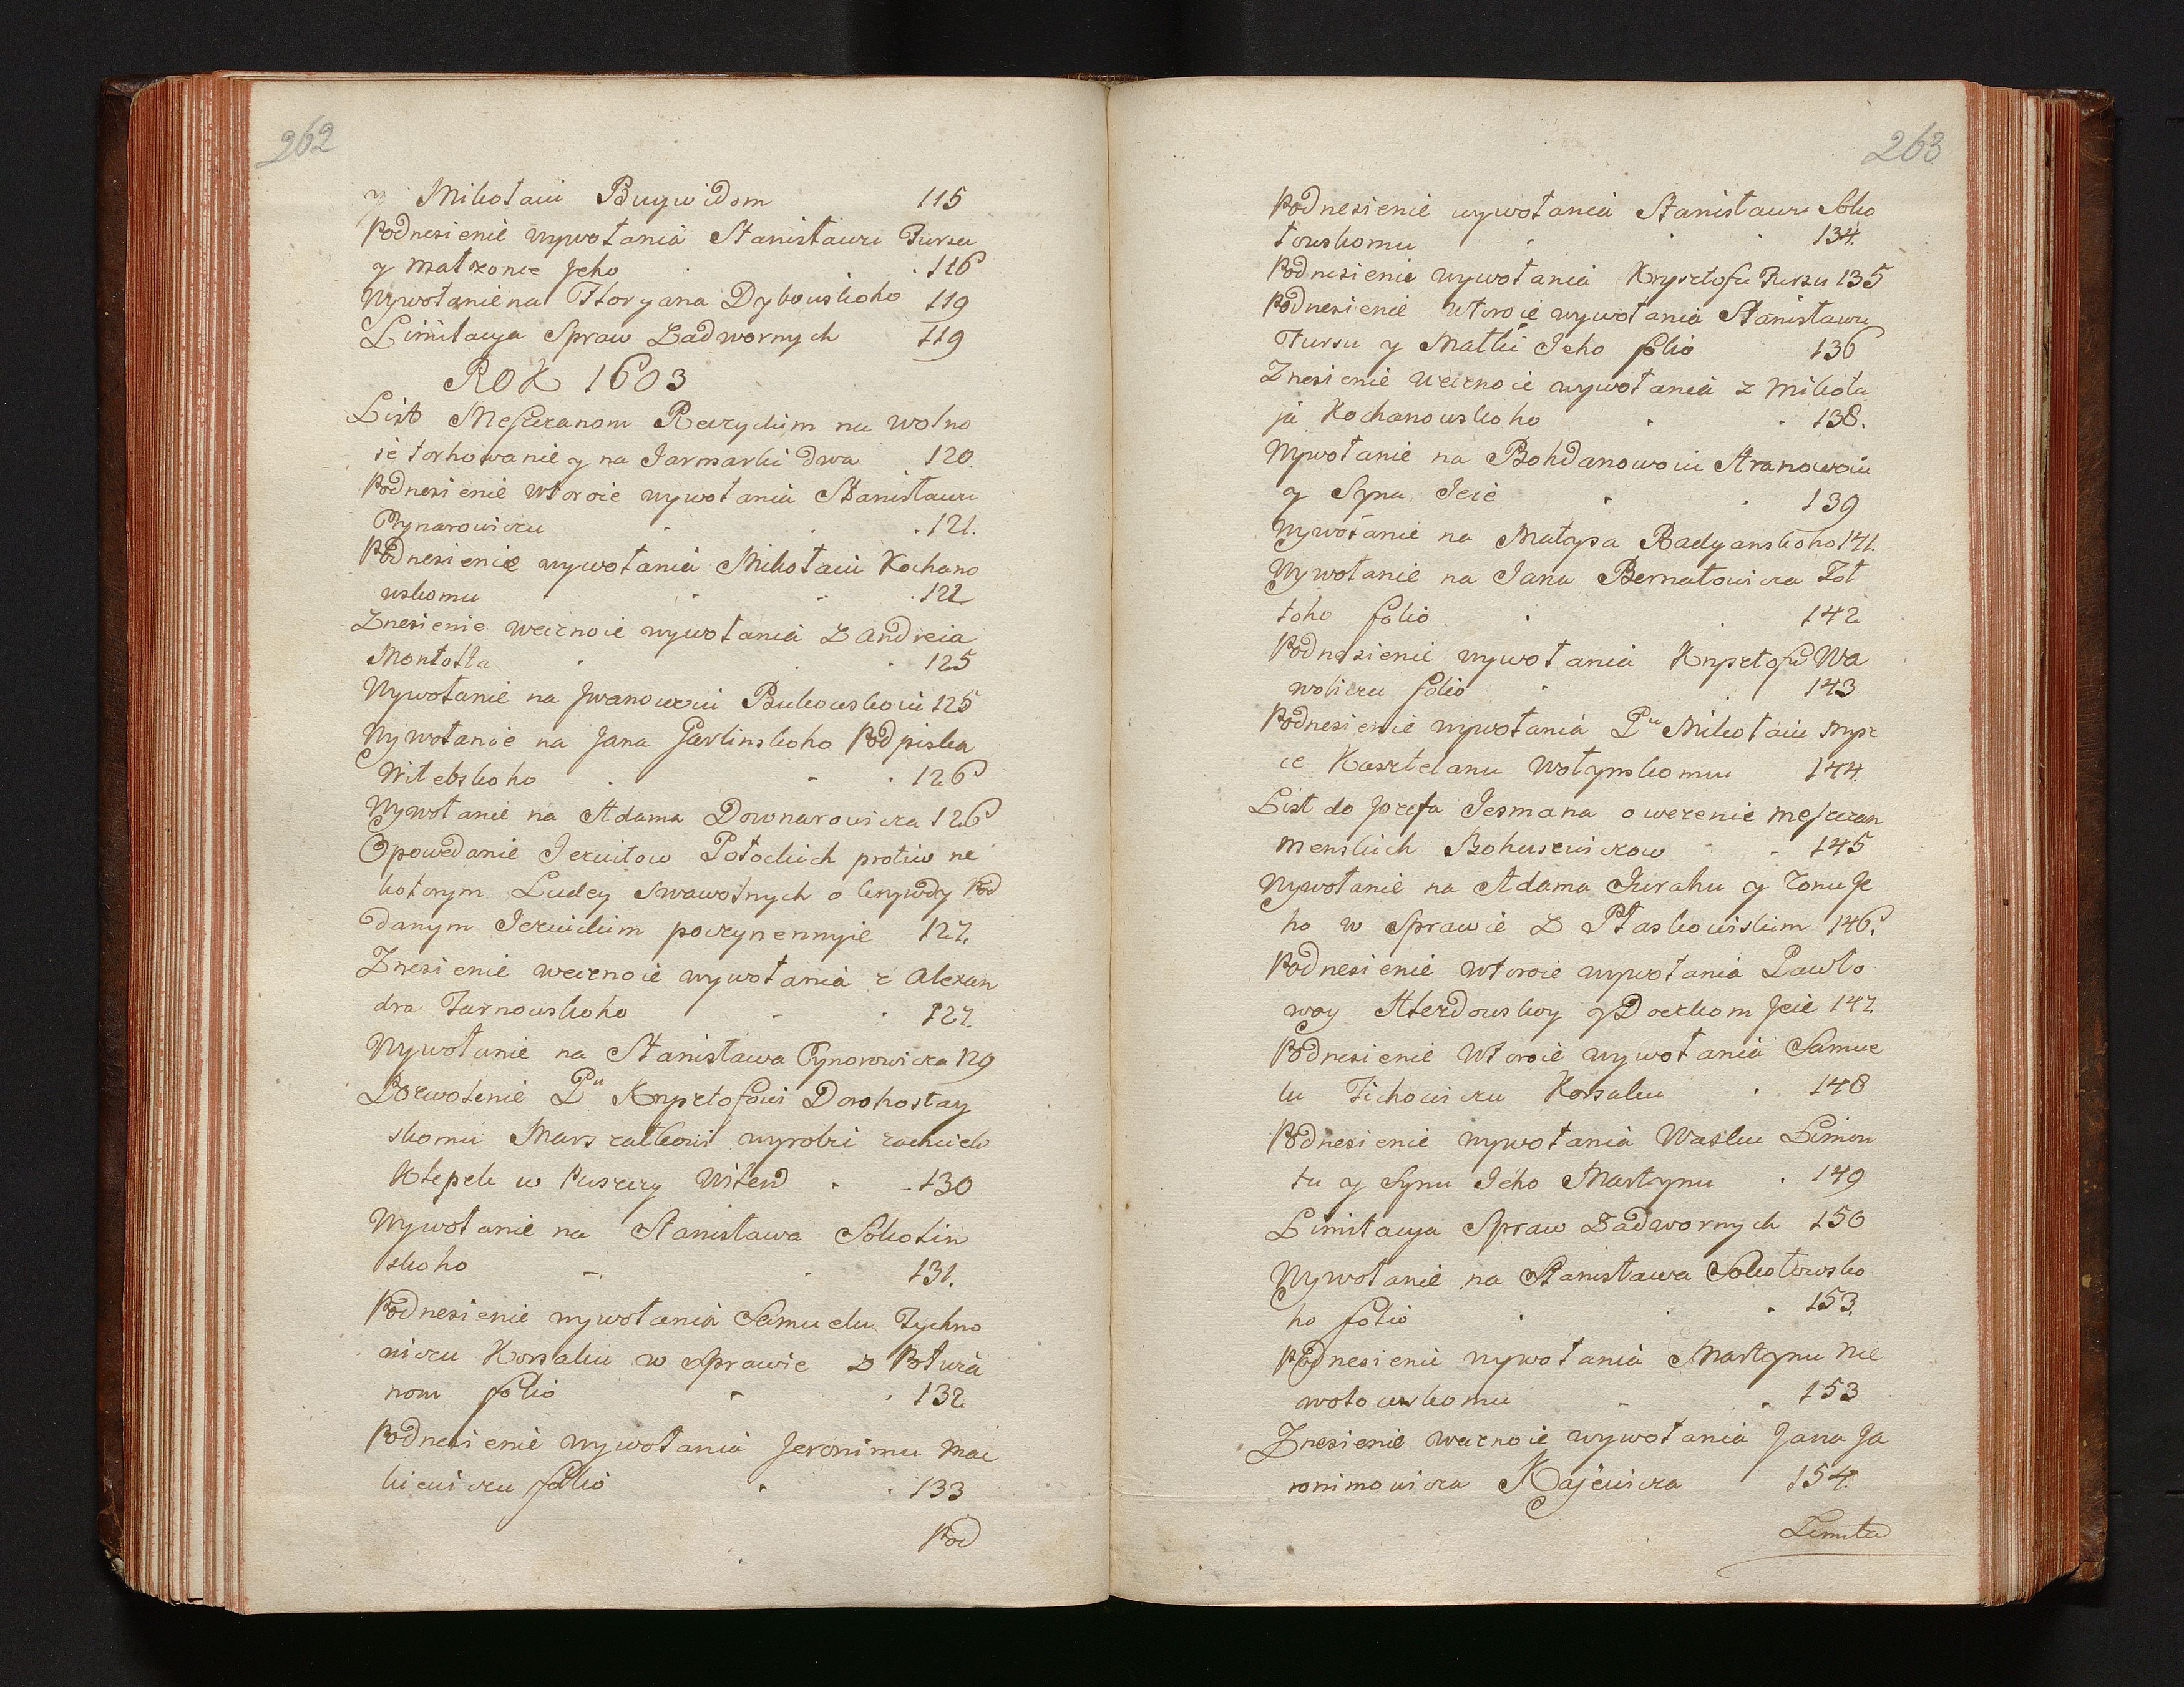 262
y Mikołaiu Buywidom 115
Podnesienie wywołania Stanisławu Tursu
y małżonce Jeho 116
Wywołanie na Floryana Dybowskoho 119
Limitacya Spraw Zadwornych 119
ROK 1603
List Meszczanom Reczyckim na wolno
ie torhowanie y na Jarmarki dwa 120
Podnesienie wtoroie wywołania Stanisławu
Pynarowiczu 121.
Podnesienie wywołania Mikołaiu Kochano
wskomu 122
Znesienie wecznoie wywołania z Andreia
Montołta 125
Wywołanie na Jwanowuiu Bukowskoiu 125
Wywołanie na Jana Gorlinskoho Podpiska
Witebskoho 126
Wywołanie na Adama Downarowicza 126
Opowedanie Jezuitow Połockich protiw ne
kotorym Ludey Swawolnych o krywdy Pod
danym Jezuickim poczynennyie 127.
Znesienie wecznoie wywołania z Alexan
dra Tarnowskoho 127.
Wywołanie na Stanisława Pynorowicza 129
Dozwolenie Pu Krysztofowi Dorohostay
skomu Marszałkowi wyrobić
w Puszczy 130
Wywołanie na Stanisława Sokolin
skoho 131.
Podnesienie wywołania Samuelu Tychno
wiczu Korsaku w Sprawie z Poturą
nom folio 132
Podnesienie wywołania Jeronimu Mac
kiewiczu folio 133
Pod
263
Podnesienie wywołania Stanisławu Soko
łowskomu 134.
Podnesienie wywołania Krysztofu Tursu 135
Podnesienie wtoroie wywołania Stanisławu
Tursu y Matki Jeho folio 136
Znesienie wecznoie wywołania z Mikoła
ja Kochanowskoho 138.
Wywołanie na Bohdanowuiu Stranowuiu
y Syna Jeie 139
Wywołanie na Matysa Radyanskoho 141.
Wywołanie na Jana Bernatowicza Żoł
toho folio 142
Podnesienie wywołania Krysztofu Wa
woliczu folio 143
Podnesienie wywołania Pu Mikołaiu Wysz
ce Kasztelanu Wołynskomu 144.
List do Jozefa Jesmana o werenie meszczan
menskich Bohusewiczow 145
Wywołanie na Adama Jurahu y Żonu Je
ho w Sprawie z Płaskowiskim 146.
Podnesienie wtoroie wywołania Pawło
woy Sterdowskoy y Doczkom Jeie 147.
Podnesienie wtoroie wywołania Samue
lu Tichowiczu Korsaku 148
Podnesienie wywołania Wasku Limon
tu y Synu Jeho Martynu 149
Limitacya Spraw Zadwornych 150
Wywołanie na Stanisława Sokołowsko
ho folio 153.
Podnesienie wywołania Martynu Nie
wołowskomu 153
Znesienie wecznoie wywołania Jana Ja
ronimowicza Kajewicza 154.
Limita